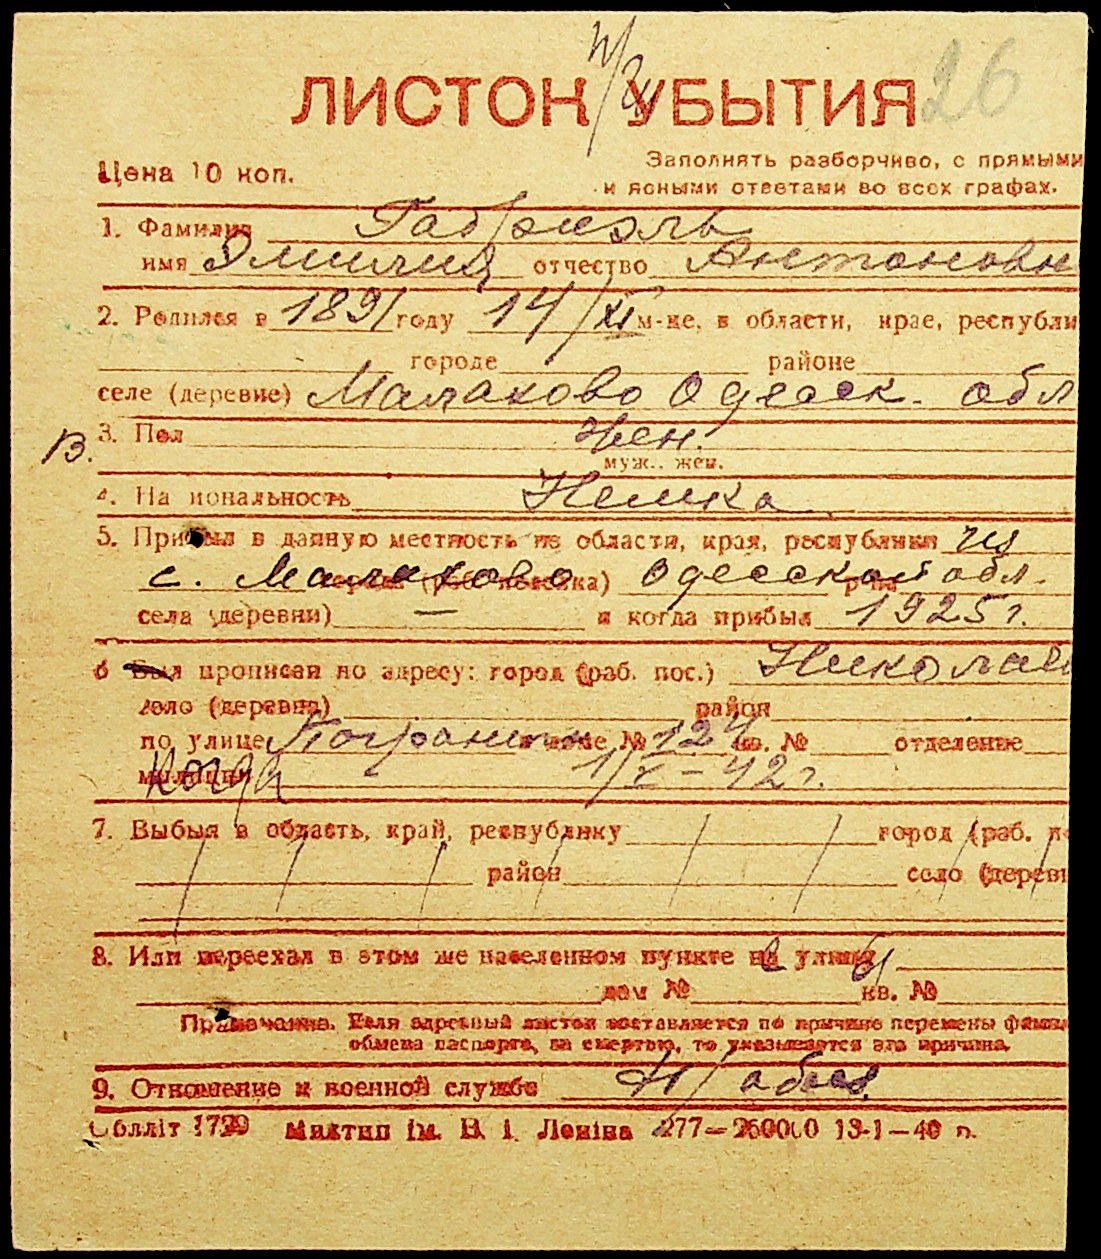 26
ЛИСТОК УБЫТИЯ
Цена 10 коп.
Заполнять разборчиво, с прямыми
и ясными ответами во всех графах.
1. Фамилия Габриэль
имя Эмилия отчество Антоновн
2. Родился в 1891 году 14/XI м-це, в области, крае, республи
городе районе
селе (деревне) Малахово Одесск. обл
3. Пол Жен.
В.
муж., жен.
4. Национальность Немка
5. Прибыл в данную местность из области, края, республики из
с. Малахово Одесской обл.
села (деревни) — и когда прибыл 1925 г.
6 Был прописан по адресу: город (раб. пос.) Николаев
село (деревня) район
по улице Погранична № 124 кв. № отделение
милиции когда 1/X–42 г.
7. Выбыл в область, край, республику город (раб. п
район село (деревн
8. Или переехал в этом же населенном пункте на улицу
дом № кв. №
Примечание. Если адресный листок составляется по причине перемены фамил
обмена паспорта, за смертью, то указывается эта причина.
9. Отношение к военной службе н/обяз.
Облліт 1729 Миктип ім. В. І. Леніна 277—250000 13-1—40 р.